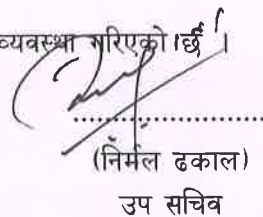 व्यवस्था गरिएको छ ।
....................
(निर्मल ढकाल)
उप सचिव